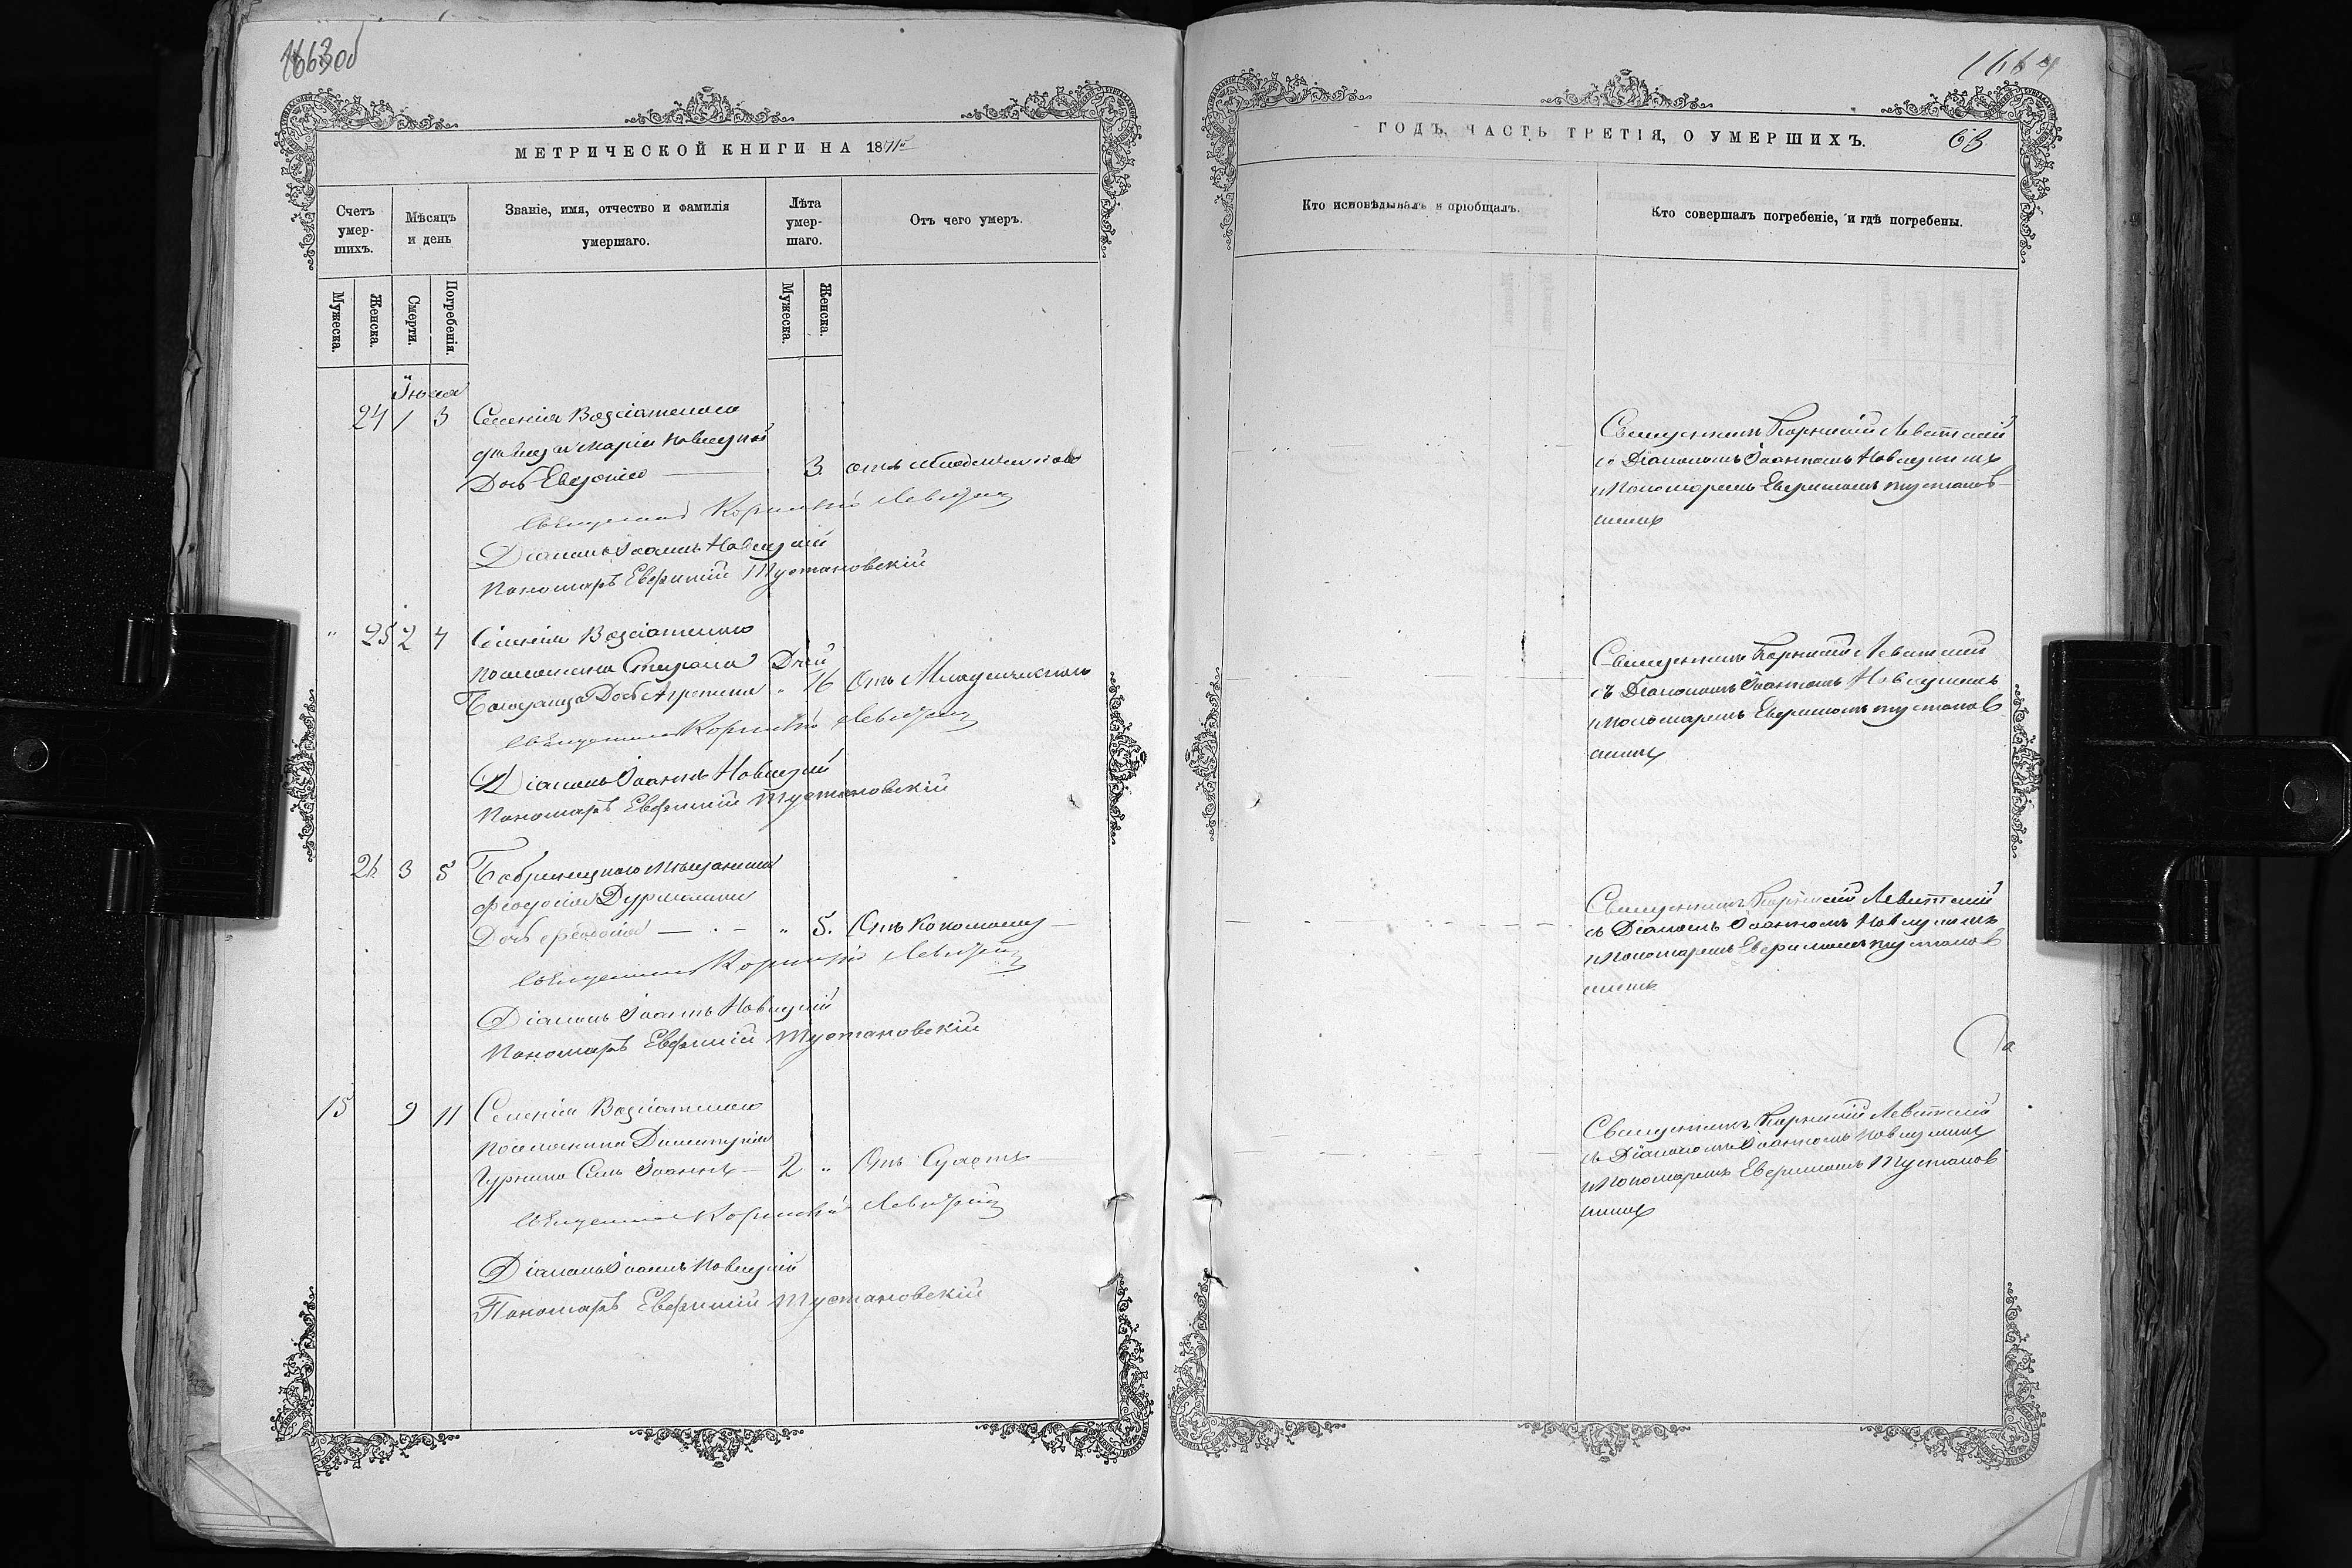 1663об
МЕТРИЧЕСКОЙ КНИГИ НА 1871й
Счетъ умер-шихъ.
Мѣсяцъ и день
Званіе, имя, отчество и фамилія умершаго.
Лѣта умер-шаго.
Отъ чего умеръ.
Мужеска.
Женска.
Смерти.
Погребенія.
Мужеска.
Женска.
24 1 3 Селенія
дѣвицы Маріи Новицкой
Дочь Евдокія 3. отъ
Священникъ Корнилій Левитскій
Діаконъ Іоаннъ Новицкій
Пономарь Евфимій Тустановскій
" 25 2 4 Селенія
поселянина Стефана Дней
Дочь " 16 Отъ Младенческой
Священникъ Корнилій Левитскій
Діаконъ Іоаннъ Новицкій
Пономарь Евфимій Тустановскій
3 5 Бобринецкаго мѣщанина
Феодосія
Дочь " 5. Отъ
Священникъ Корнилій Левитскій
Діаконъ Іоаннъ Новицкій
Пономарь Евфимій Тустановскій
15 9 11 Селенія
поселянина Димитрія
Сынъ Іоаннъ 2 " Отъ
Священникъ Корнилій Левитскій
Діаконъ Іоаннъ Новицкій
Пономарь Евфимій Тустановскій
1664
ГОДЪ, ЧАСТЬ ТРЕТІЯ, О УМЕРШИХЪ.
63
Кто исповѣдывалъ и пріобщалъ.
Кто совершалъ погребеніе, и гдѣ погребены.
Священникъ Корнилій Левитскій
съ Діакономъ Іоанномъ Новицкимъ
и Пономаремъ Евфиміемъ Тустанов
скимъ
Священникъ Корнилій Левитскій
съ Діакономъ Іоанномъ Новицкимъ
и пономаремъ Евфиміемъ Тустанов
скимъ
Священникъ Корнилій Левитскій
съ Діакономъ Іоанномъ Новицкимъ
и Пономаремъ Евфиміемъ Тустанов
скимъ
Священникъ Корнилій Левитскій
съ Діакономъ Іоанномъ Новицкимъ
и Пономаремъ Евфиміемъ Тустанов
скимъ